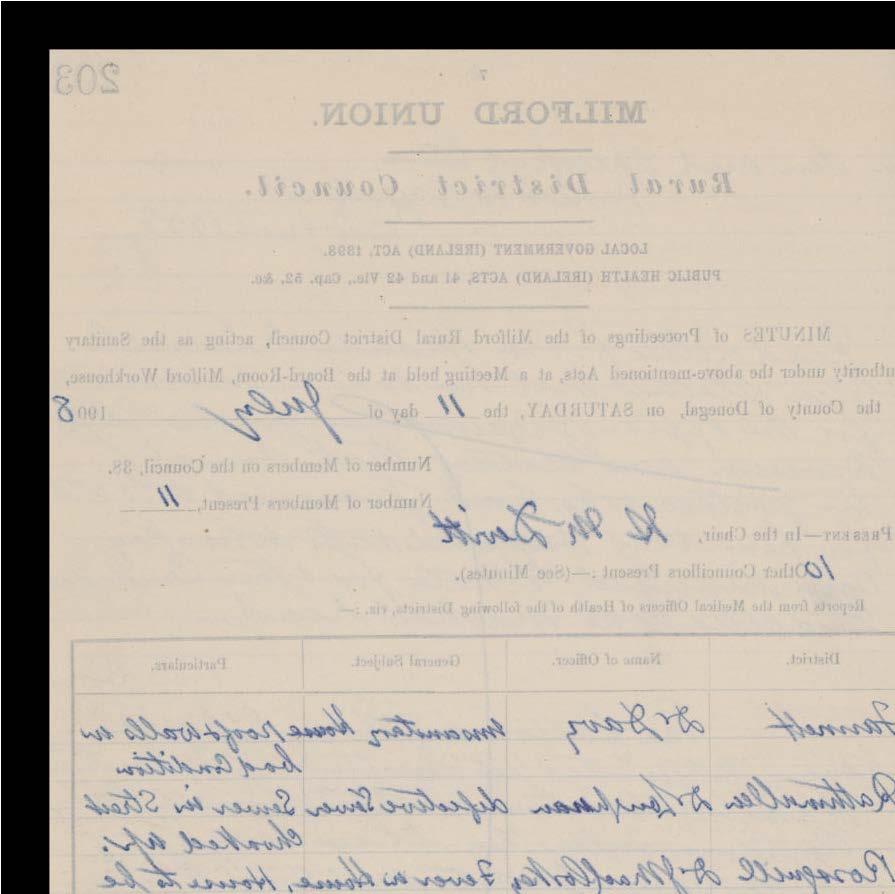 203
7
MILFORD UNION.
Rural District Council.
LOCAL GOVERNMENT (IRELAND) ACT, 1898.
PUBLIC HEALTH (IRELAND) ACTS, 41 and 42 Vic., Cap. 52, &c.
MINUTES of Proceedings of the Milford Rural District Council, acting as the Sanitary
uthority under the above-mentioned Acts, at a Meeting held at the Board-Room, Milford Workhouse,
the County of Donegal, on SATURDAY, the 11 day of July 1908
Number of Members on the Council, 38.
Number of Members Present, 11
PRESENT—In the Chair, McDevitt
10 Other Councillors Present :—(See Minutes).
Reports from the Medical Officers of Health of the following Districts, viz. :—
District. Name of Officer. General Subject. Particulars.
Fannett Dr Davy Insanitary House roof & walls in
bad Condition
Rathmullen Dr defective Sewer Sewer in Street
Choaked up.
Rosguill Dr Fever in Home, House to be